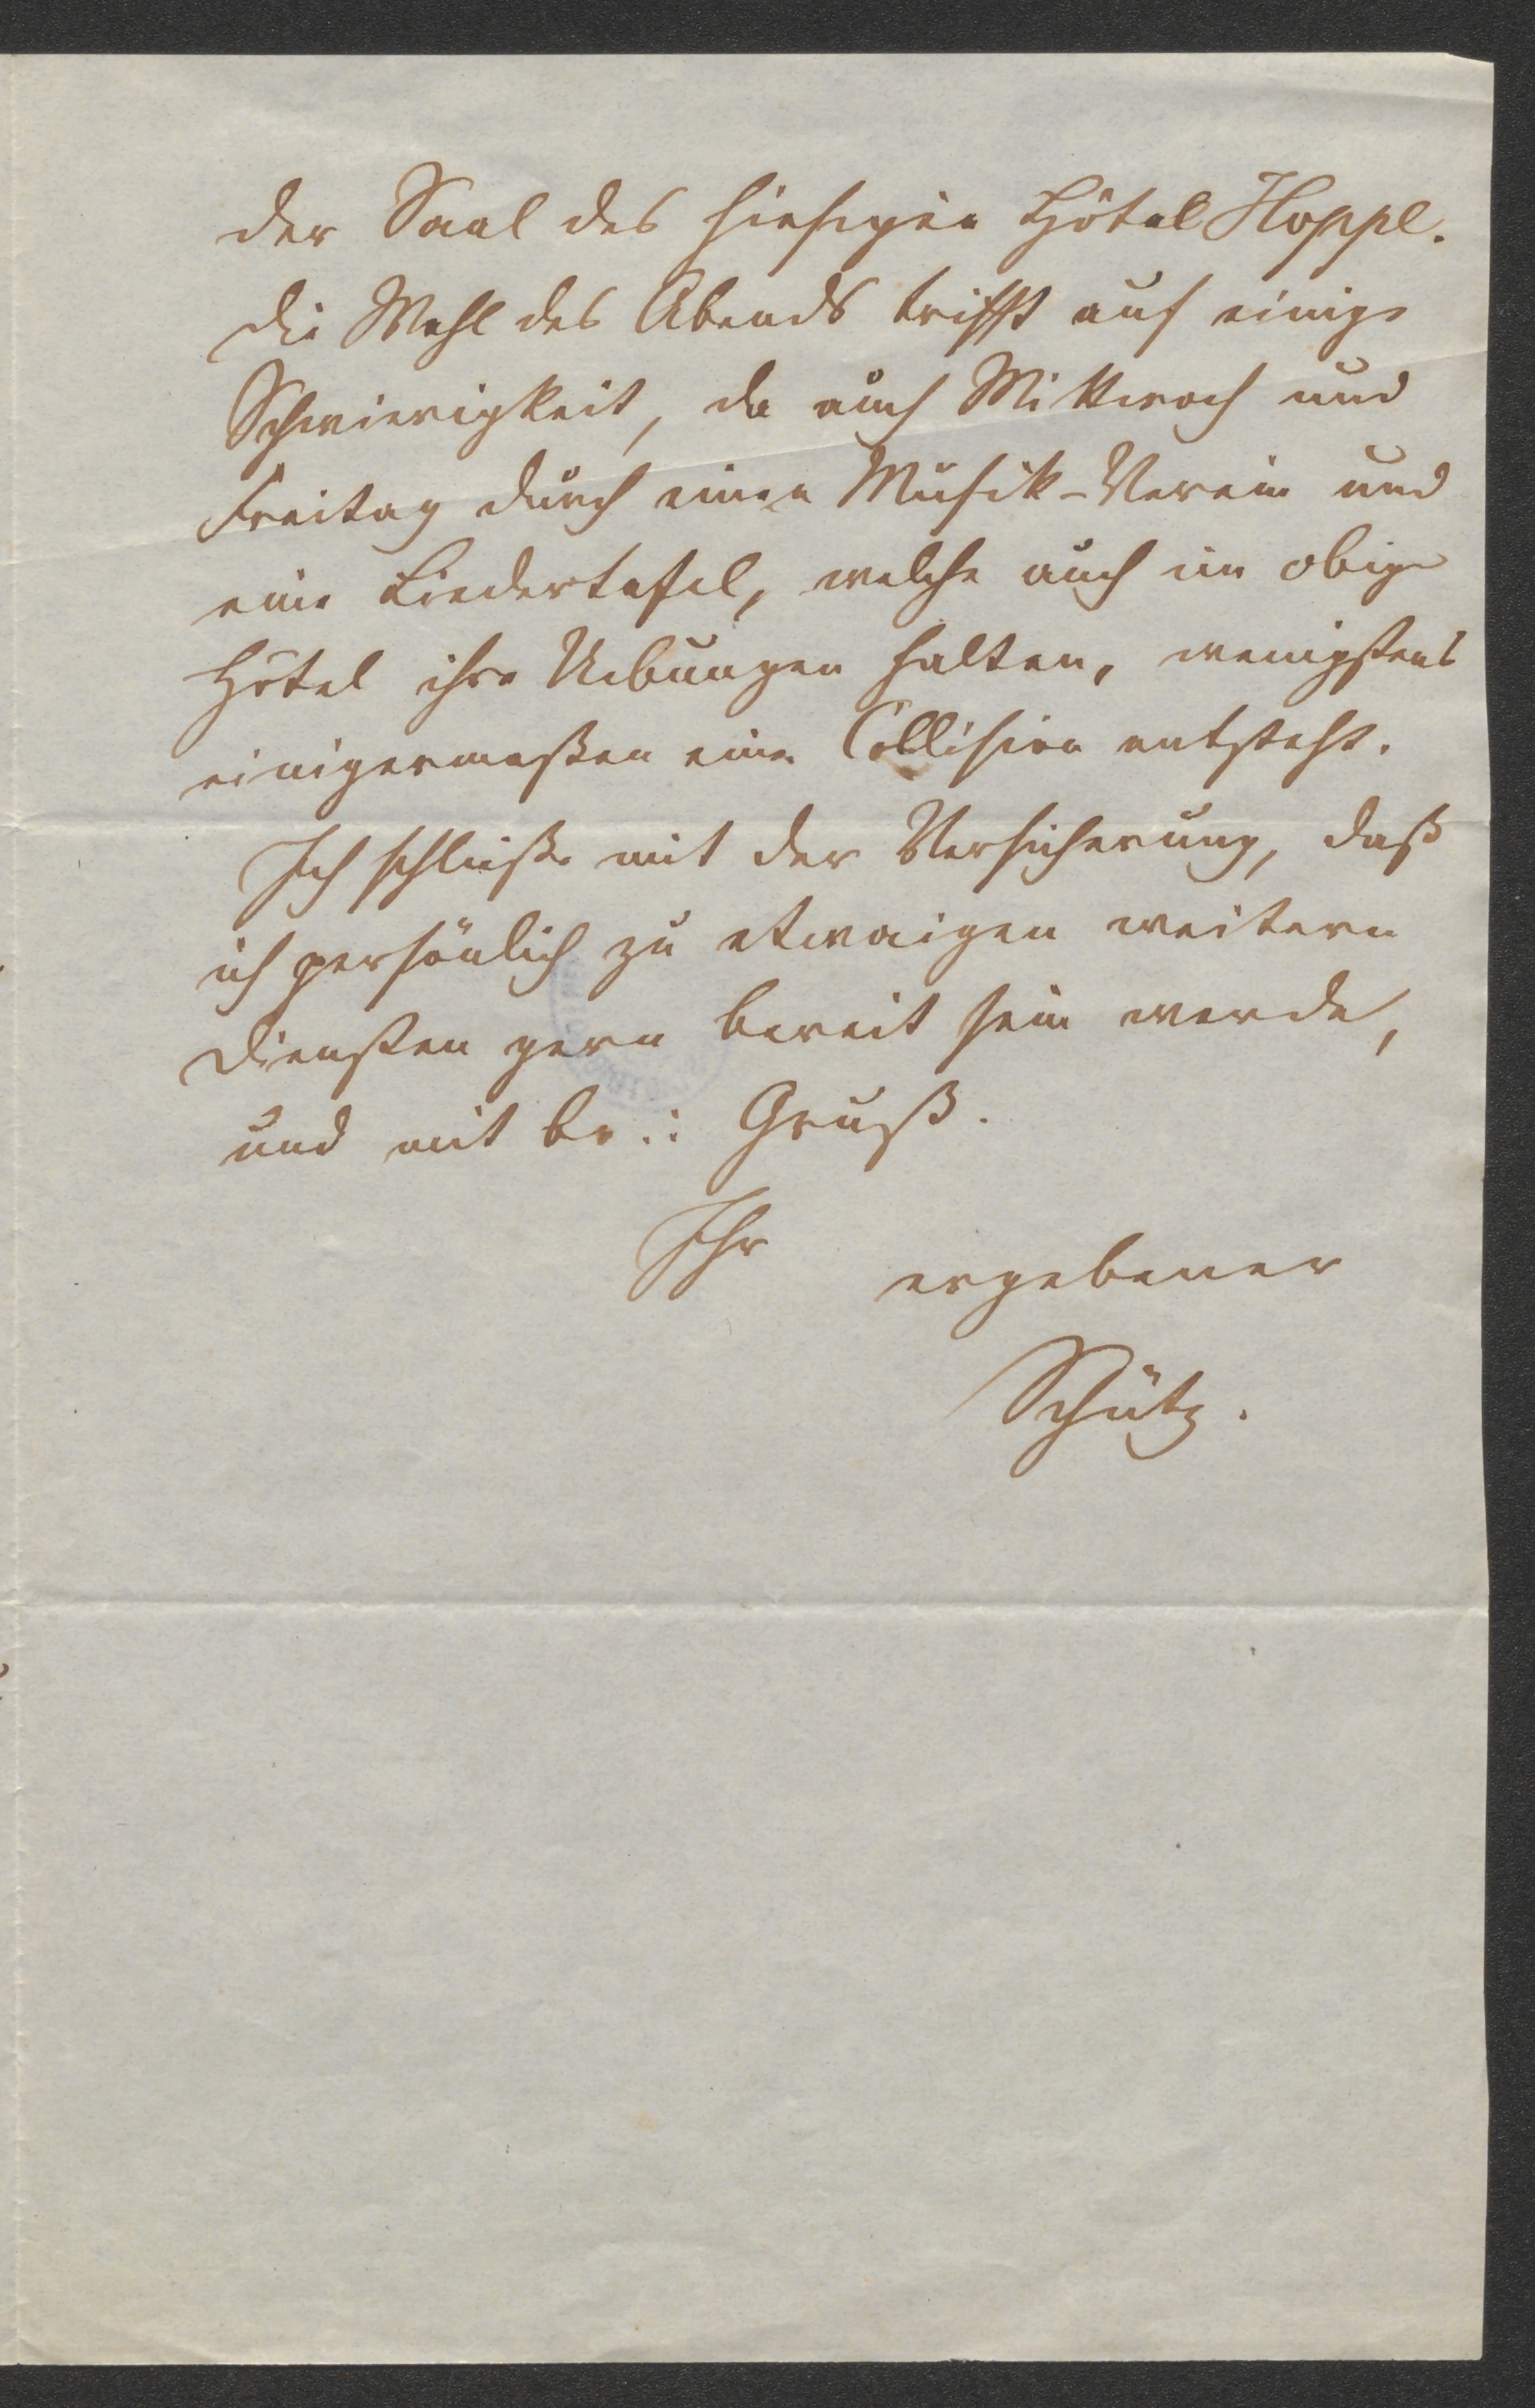 der Saal des hiesigen Hôtel Hoppe.
Die Wahl des Abends trifft auf einige
Schwierigkeit, da auch Mittwoch und
Freitag durch einen Musik-Verein und
eine Liedertafel, welche auch im obigen
Hôtel ihre Uebungen halten, wenigstens
einigermaßen eine Collision entsteht.
Ich schließe mit der Versicherung, daß
ich persönlich zu etwaigen weitern
Diensten gern bereit sein werde,
und mit br.: Gruß.
Ihr ergebener
Schütz.